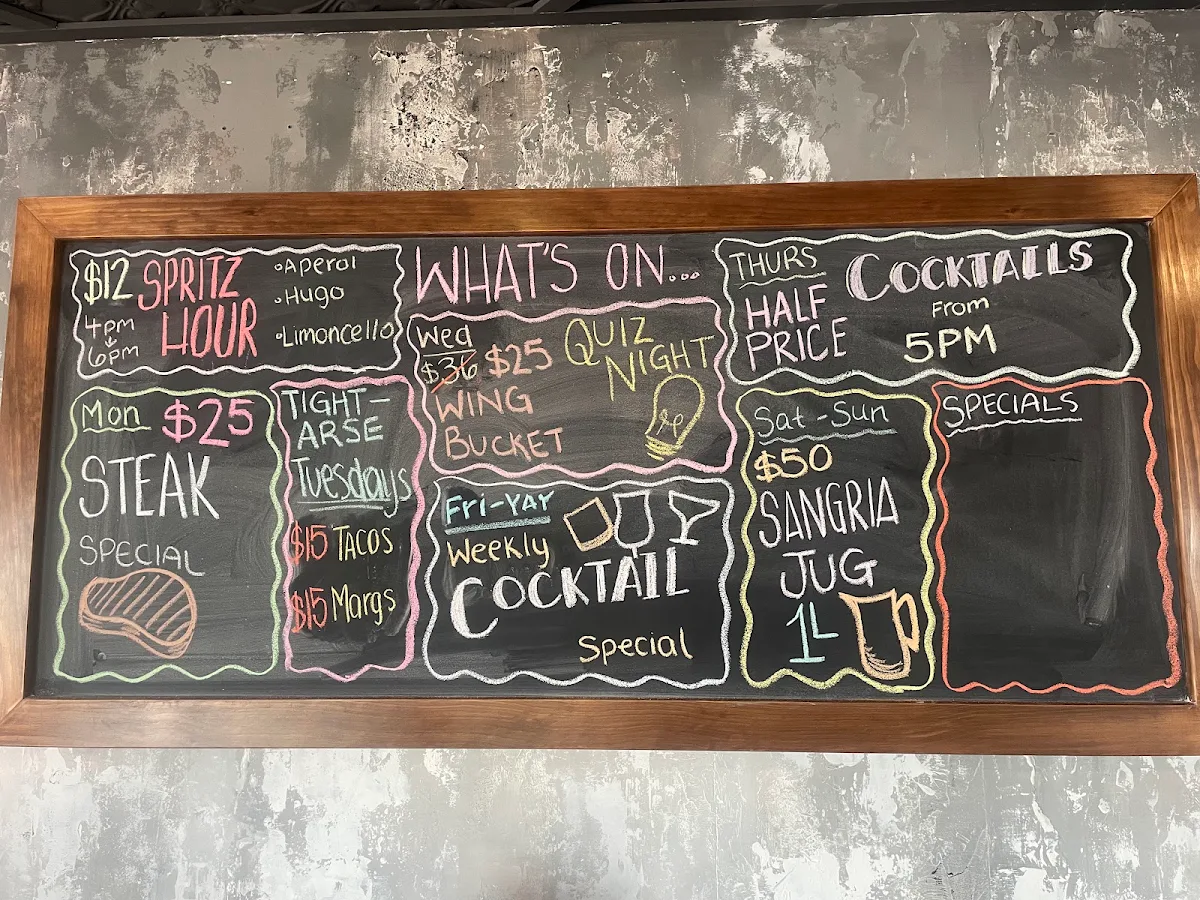 WHAT'S ON...
$12 SPRITZ
HOUR
4pm
6pm
◦Aperol
◦Hugo
◦Limoncello
Mon $25
STEAK
SPECIAL
TIGHT-
ARSE
Tuesdays
$15 TACOS
$15 Margs
Wed
$36 $25
WING
BUCKET
QUIZ
NIGHT
THURS
HALF
PRICE
COCKTAILS
From
5PM
Fri-YAY
Weekly
COCKTAIL
Special
Sat-Sun
$50
SANGRIA
JUG
1L
SPECIALS